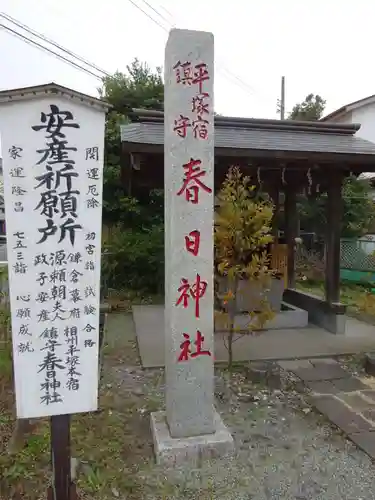 平塚宿
鎮守
春日神社
安産祈願所
関運厄除
初宮詣
試験合格
家運隆昌
七五三
心願成就
鎌倉
源頼朝
政子安産
相州平塚本宿
鎮守春日神社